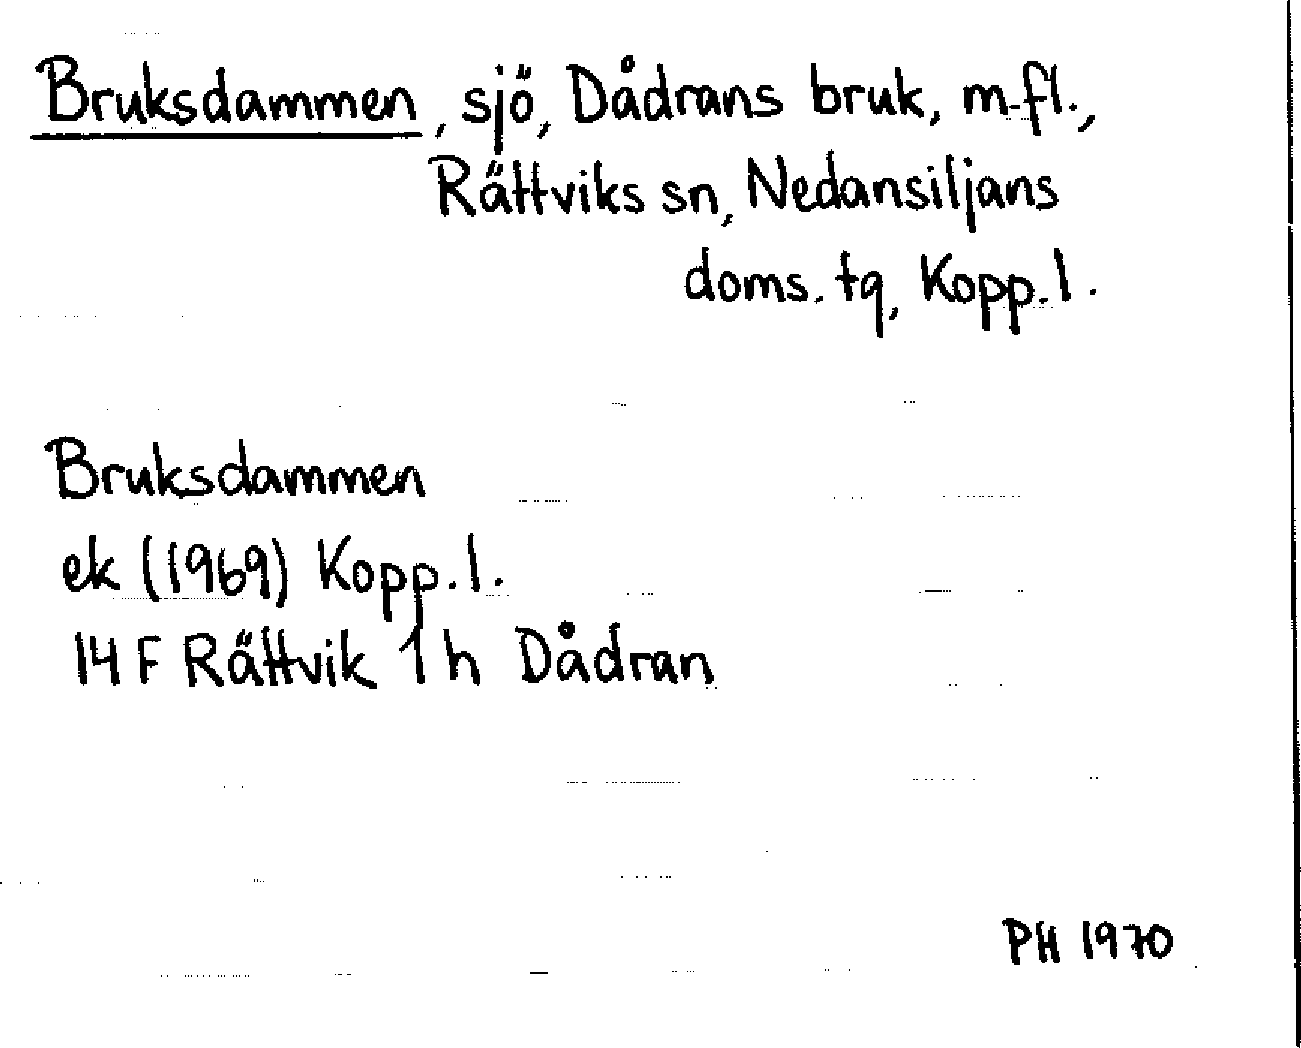 Bruksdammen, sjö, Dådrans bruk, m.fl.,
Rättviks sn, Nedansiljans
doms. tg, Kopp. l.
Bruksdammen
ek (1969) Kopp. l.
14 F Rättvik 1 h Dådran
PH 1970